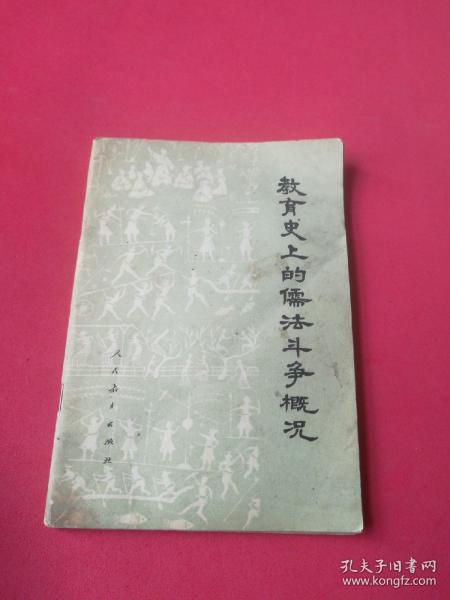 教育史上的儒法斗争概况
人民教育出版社
孔夫子旧书网
www.kongfz.com